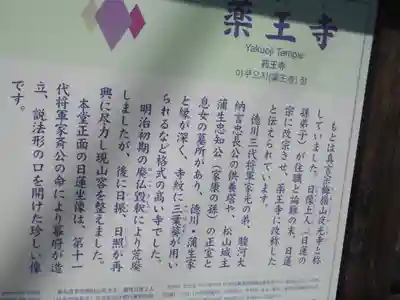 薬王寺
Yakuoji Temple
药王寺
야쿠오지(薬王寺) 절
もとは真言宗梅嶺山夜光寺と称
していました。日像上人（日蓮の
孫弟子）が住職と論難の末、日蓮
宗に改宗させ、薬王寺に改称した
と伝えられています。
徳川三代将軍家光の弟、駿河大
納言忠長公の供養塔や、松山城主
蒲生忠知公（家康の孫）の正室と
息女の墓所があり、徳川・蒲生家
と縁が深く、寺紋に三葉葵が用い
られるなど格式の高い寺でした。
明治初期の廃仏毀釈により荒廃
しましたが、後に日振、日照が再
興に尽力し現山容を整えました。
本堂正面の日蓮坐像は、第十一
代将軍家斉公の命により幕府が造
立、説法形の口を開けた珍しい像
です。